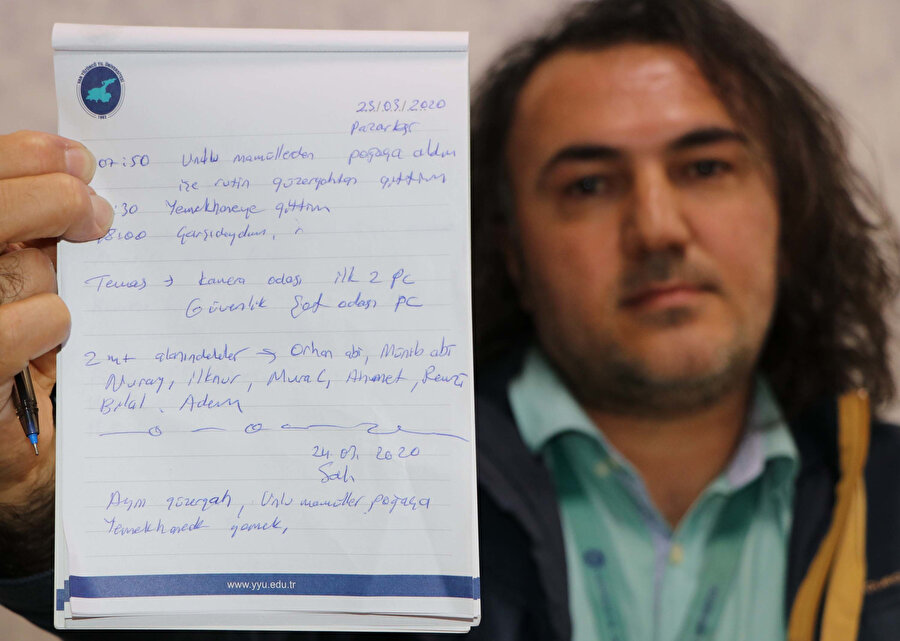 VAN YÜZÜNCÜ YIL ÜNİVERSİTESİ
1982
23/03/2020
Pazartesi
07:50 Unlu mamüllerden poğaça aldım
işe rutin güzergahtan gittim
:30 Yemekhaneye gittim
18:00 Çarşıdaydım,
Temas → Kamera odası ilk 2 PC
Güvenlik Şef odası PC
2 mt alanındekiler → Orhan abi, Münib abi
Nuray, ilknur, Murat, Ahmet, Remzi
Bilal, Adem
24.03.2020
Salı
Aynı güzergah, Unlu mamüller poğaça
Yemekhanede yemek,
www.yyu.edu.tr